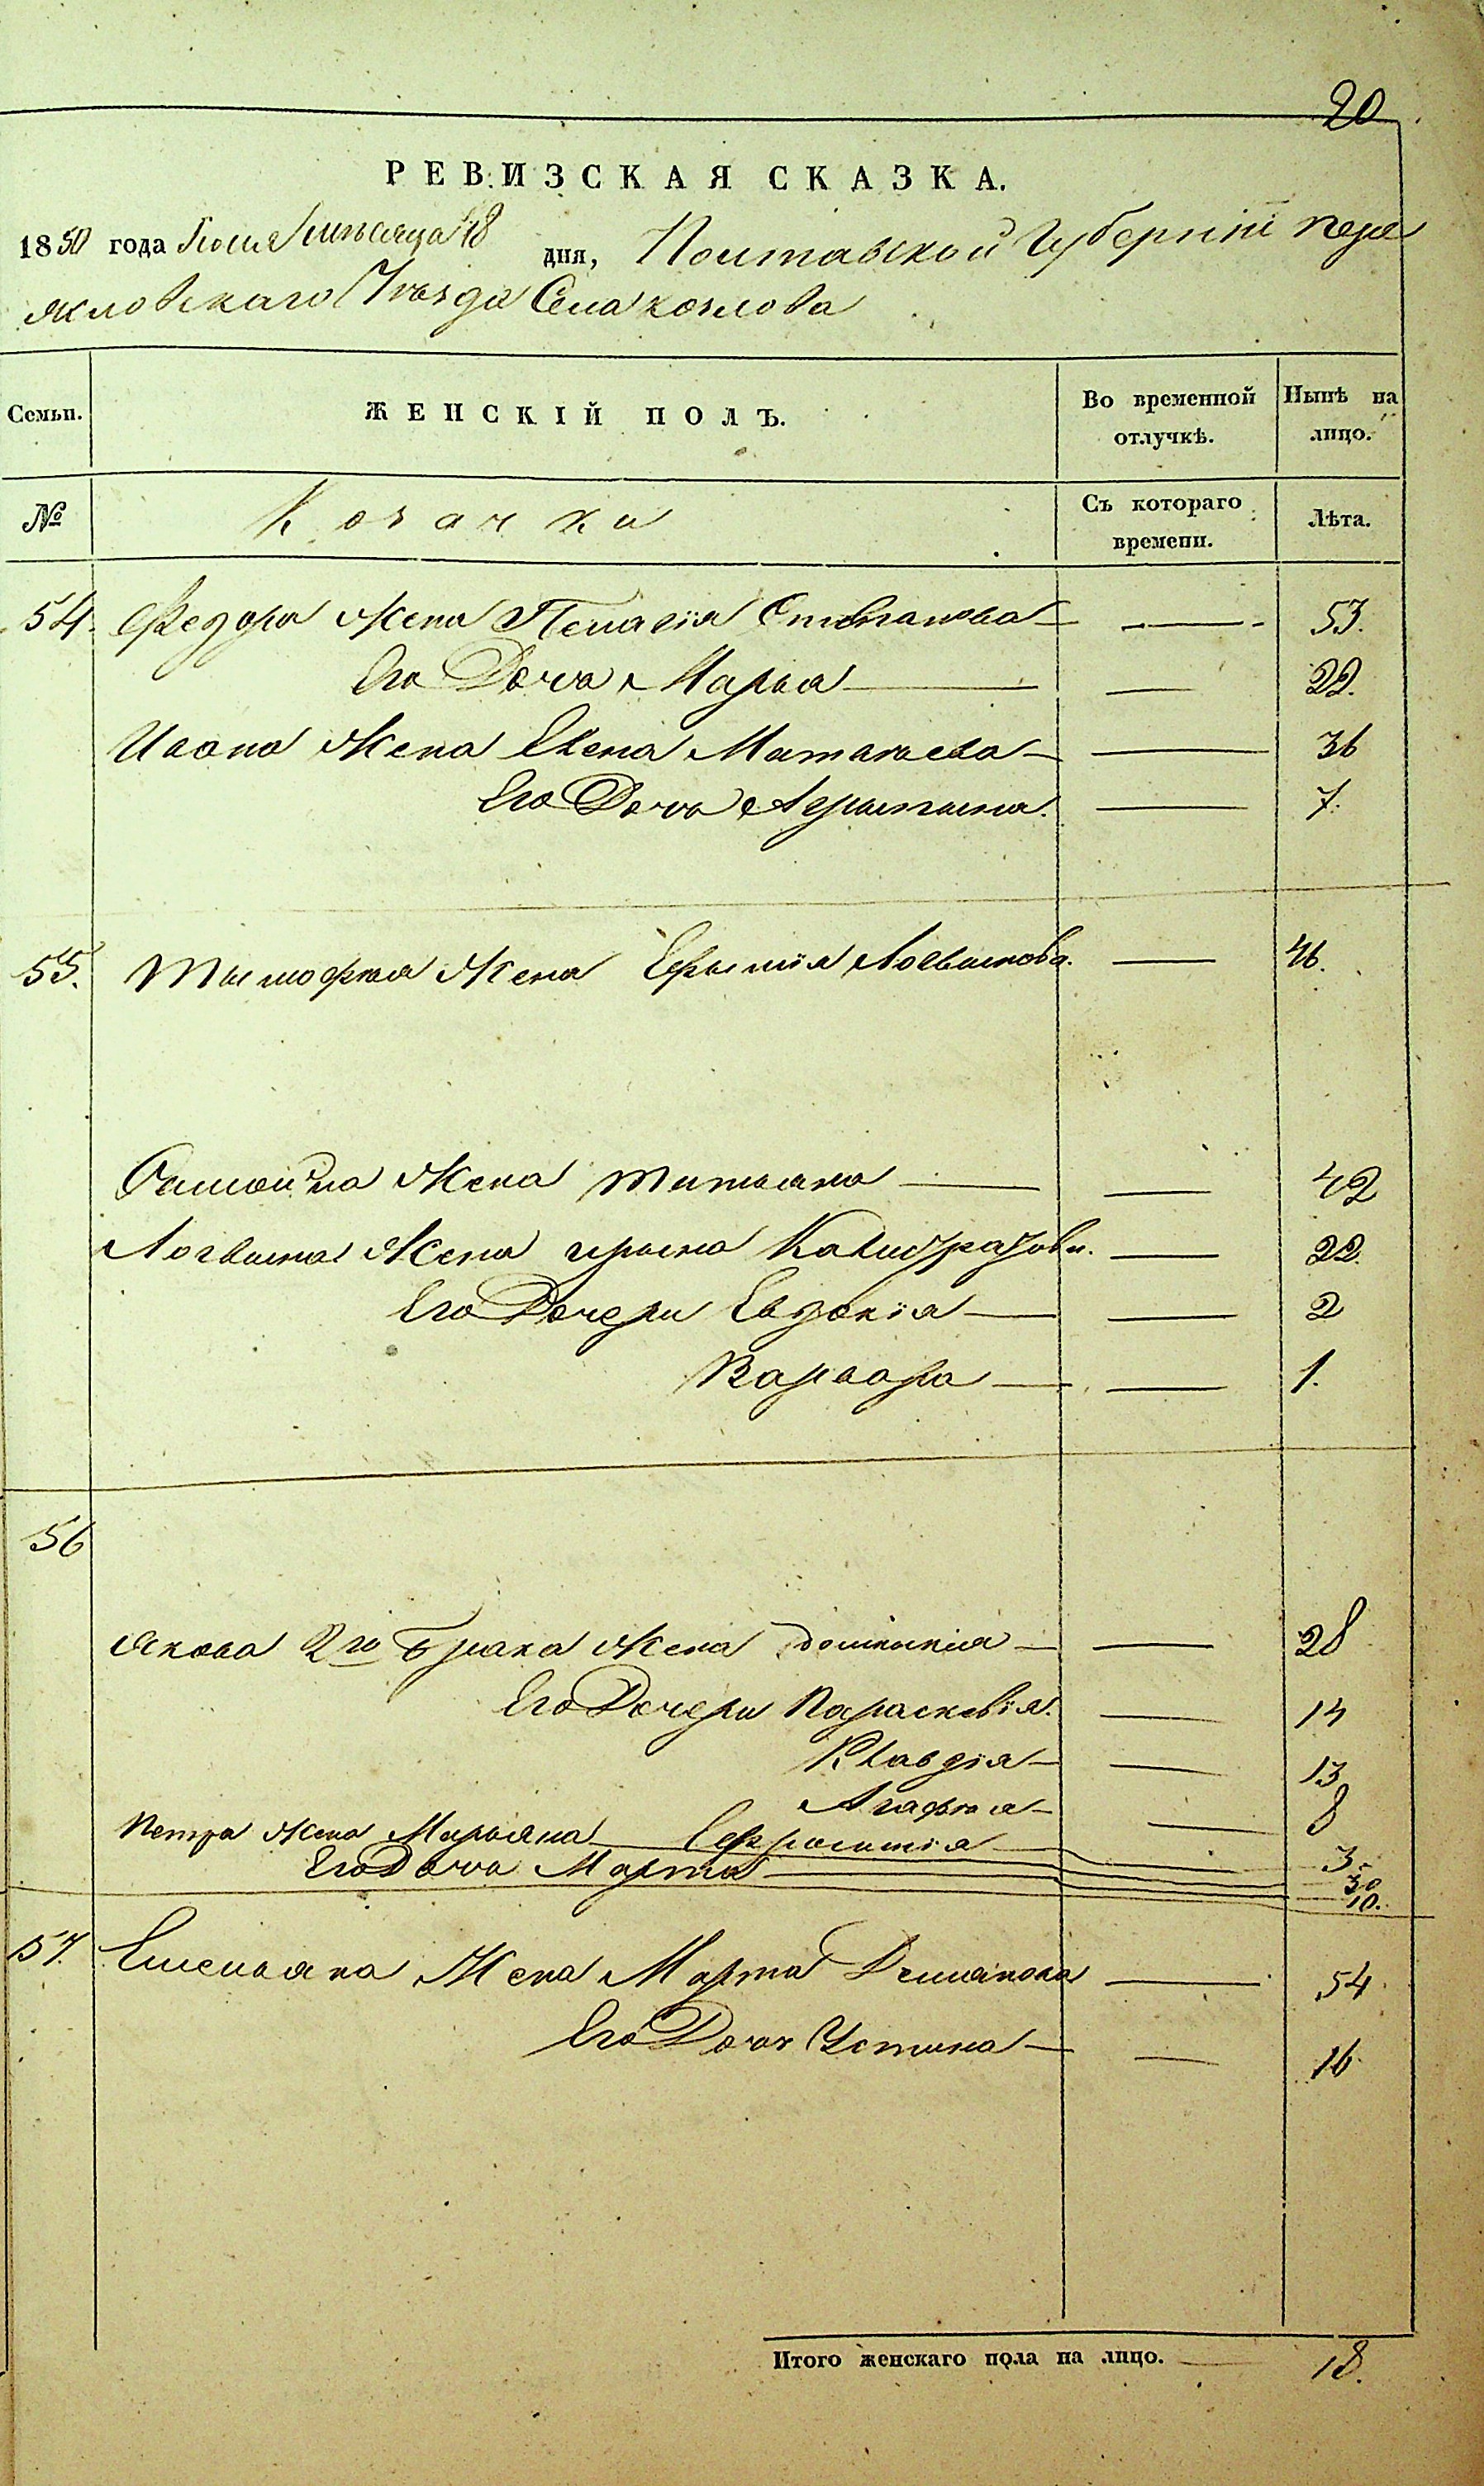 20
РЕВИЗСКАЯ СКАЗКА.
1850 года Іюня мѣсяца 18 дня, Полтавской Губерніи пере
яславскаго Уѣзда Села козлова
Семьи. ЖЕНСКІЙ ПОЛЪ. Во временной отлучкѣ. Нынѣ на лицо.
№ Козачки Съ котораго времени. Лѣта.
54. Федора Жена Пелагія Степанова — — 53.
Его Дочь Марья — — 22.
Ивана Жена Елена Матвѣева — — 36
Его Дочь — 7.
55. Тымофѣя Жена Ефимія Логвинова. — 46.
Самойла Жена татьяна — — 42
Логвина Жена ирына — 22.
Его Дочери Евдокія — — 2
Варвара — — 1.
56
Якова 2го брака Жена Домникія — — 28
Его Дочери Параскевія. — 14
Клавдія — — 13
Агафія — — 8
Петра Жена Марьяна Ефросинія — — 3.
Его Дочь Марта — 30
10.
57. Емельяна Жена Марта Демянова — 54
Его Дочь Устина — — 16.
Итого женскаго пола на лицо. — 18.